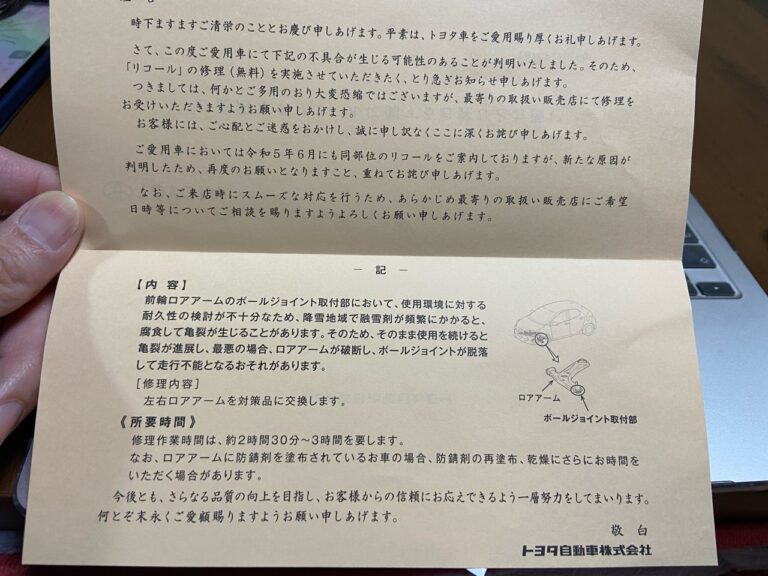 時下ますますご清栄のこととお慶び申しあげます。平素は、トヨタ車をご愛用賜り厚くお礼申しあげます。
さて、この度ご愛用車にて下記の不具合が生じる可能性のあることが判明いたしました。そのため、
「リコール」の修理(無料)を実施させていただきたく、とり急ぎお知らせ申しあげます。
つきましては、何かとご多用のおり大変恐縮ではございますが、最寄りの取扱い販売店にて修理を
お受けいただきますようお願い申しあげます。
お客様には、ご心配とご迷惑をおかけし、誠に申し訳なくここに深くお詫び申しあげます。
ご愛用車においては令和5年6月にも同部位のリコールをご案内しておりますが、新たな原因が
判明したため、再度のお願いとなりますこと、重ねてお詫び申しあげます。
なお、ご来店時にスムーズな対応を行うため、あらかじめ最寄りの取扱い販売店にご希望
日時等についてご相談を賜りますようよろしくお願い申しあげます。
― 記 ―
【内 容】
前輪ロアアームのボールジョイント取付部において、使用環境に対する
耐久性の検討が不十分なため、降雪地域で融雪剤が頻繁にかかると、
腐食して亀裂が生じることがあります。そのため、そのまま使用を続けると
亀裂が進展し、最悪の場合、ロアアームが破断し、ボールジョイントが脱落
して走行不能となるおそれがあります。
[修理内容]
左右ロアアームを対策品に交換します。
ロアアーム
ボールジョイント取付部
《所要時間》
修理作業時間は、約2時間30分～3時間を要します。
なお、ロアアームに防錆剤を塗布されているお車の場合、防錆剤の再塗布、乾燥にさらにお時間を
いただく場合があります。
今後とも、さらなる品質の向上を目指し、お客様からの信頼にお応えできるよう一層努力をしてまいります。
何とぞ末永くご愛顧賜りますようお願い申しあげます。
敬 白
トヨタ自動車株式会社